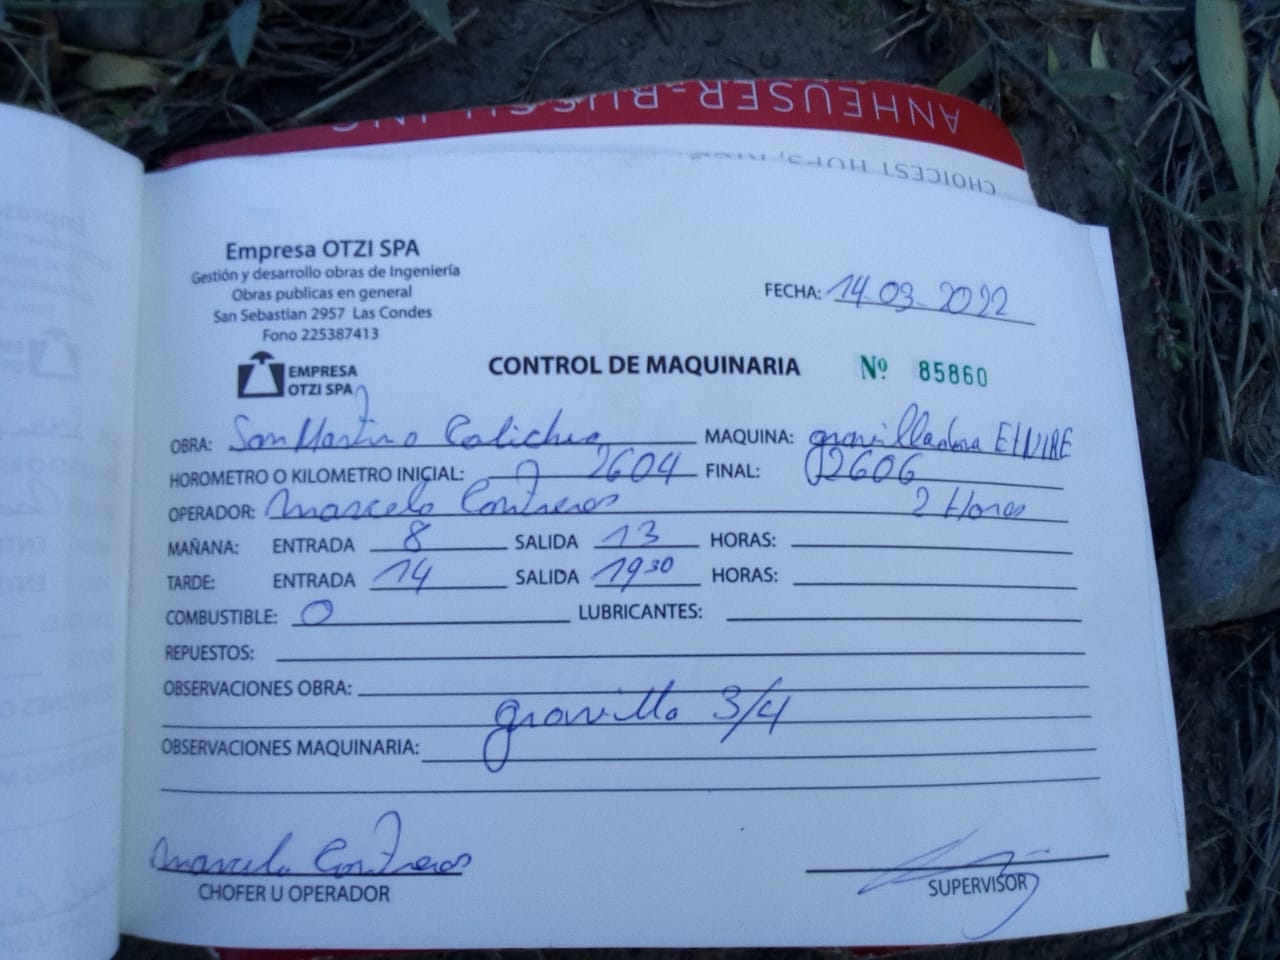 ANHEUSER-BUSCH, INC.
CHOICEST HOPS, RICE
Empresa OTZI SPA
Gestión y desarrollo obras de Ingeniería
Obras publicas en general
San Sebastian 2957 Las Condes
Fono 225387413
FECHA: 14-03-2022
EMPRESA
OTZI SPA
CONTROL DE MAQUINARIA Nº 85860
OBRA: San Martino Calichea MAQUINA: gravilladora
HOROMETRO O KILOMETRO INICIAL: 2604 FINAL: 2606
OPERADOR: Marcelo Contreras 2 Horas
MAÑANA: ENTRADA 8 SALIDA 13 HORAS:
TARDE: ENTRADA 14 SALIDA 19 30 HORAS:
COMBUSTIBLE: 0 LUBRICANTES:
REPUESTOS:
OBSERVACIONES OBRA:
gravilla 3/4
OBSERVACIONES MAQUINARIA:
Marcelo Contreras
CHOFER U OPERADOR
SUPERVISOR